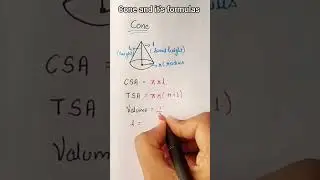 Cone and it's formulas
Cone
h
l
(height)
(slant height)
r radius
CSA = πrl
TSA = πr(r+l)
Volume = 1
l =
Volum